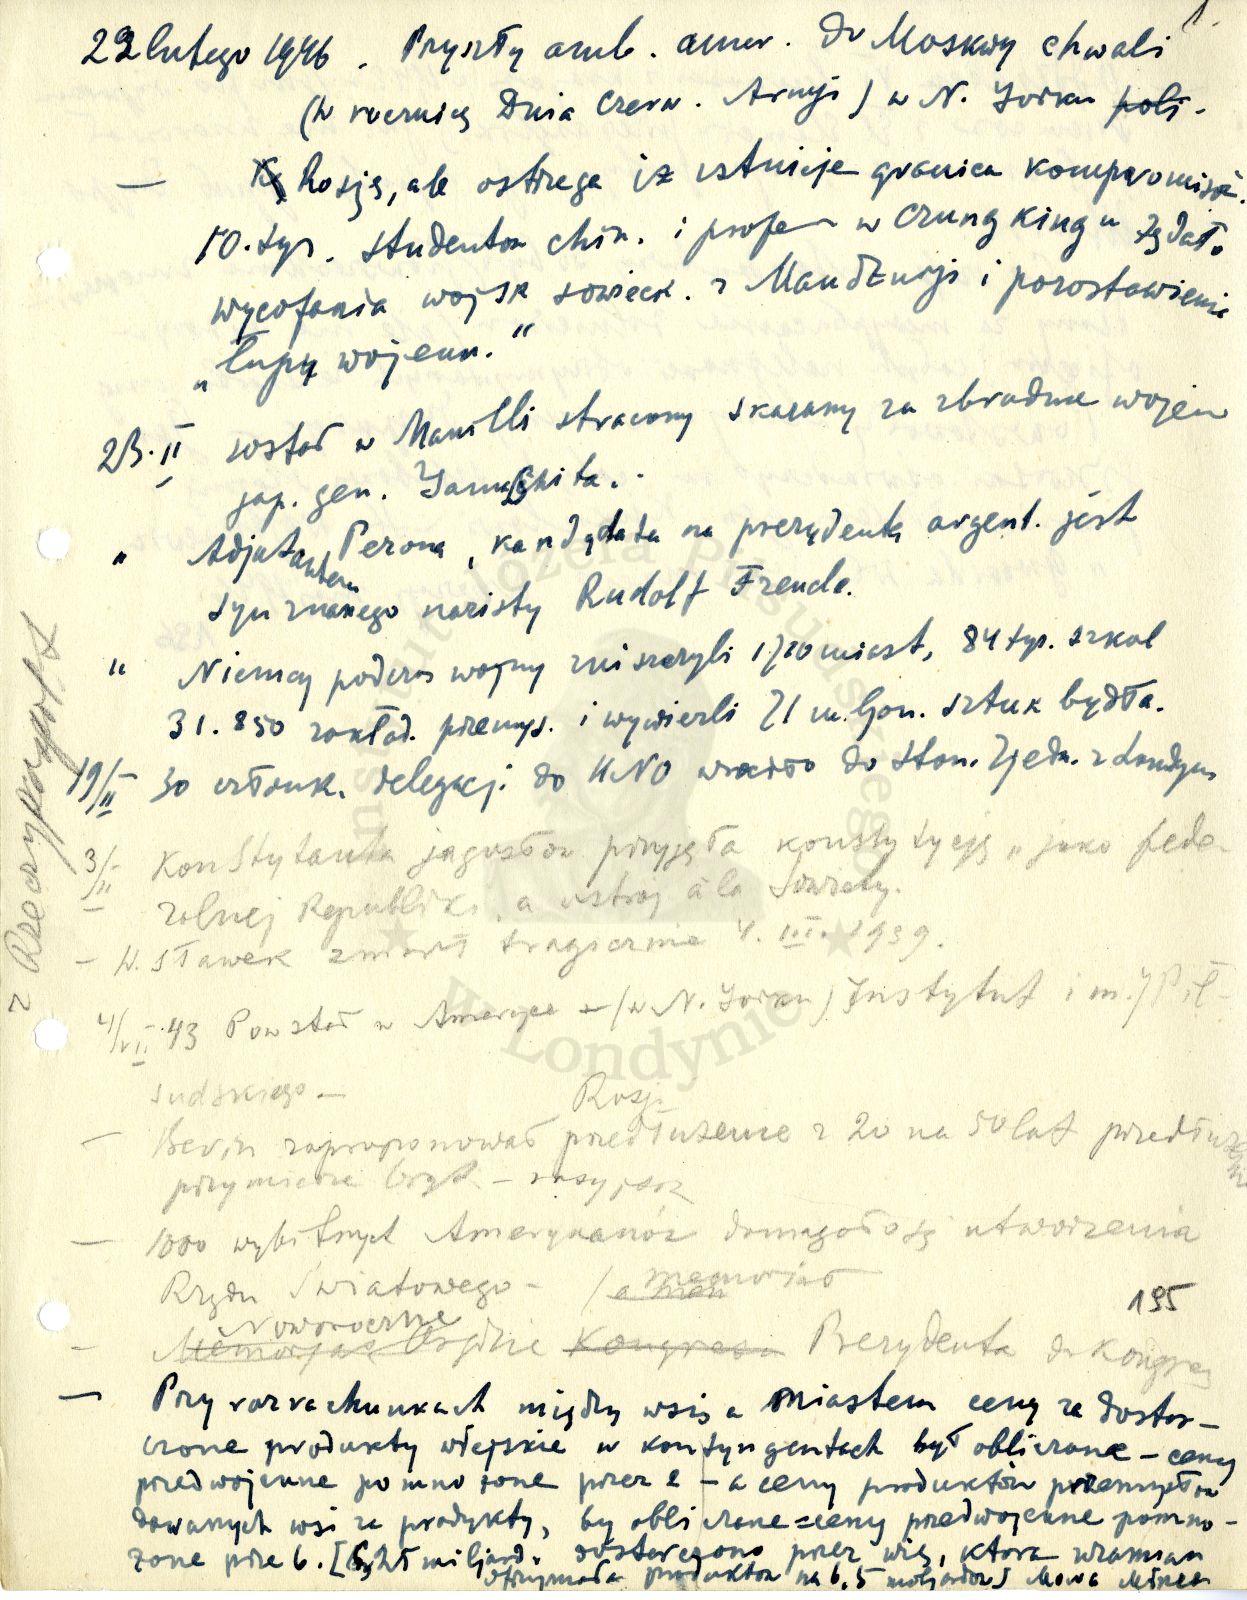 1.
22 lutego 1946. Przyszły amb. amer. do Moskwy chwali
(w rocznicę Dnia Czerw. Armji) w N. Jorku pols-
— Rosję, ale ostrzega iż istnieje granica kompromisów.
50.tys. studentów chin. i profes w Czungkingu żądało
wycofania wojsk sowieck. z Mandżurji i pozostawienie
„łupy wojenn.“
23.II został w Manilli stracony skazany za zbrodnie wojen
jap. gen. Yamashita.
" Adjutantem Perona, kandydata na prezydenta argent. jest
syn znanego nazisty Rudolf Freude.
" Niemcy podczas wojny zniszczyli 1720 miast, 84 tys. szkół
31.850 zakład. przemys. i wywieźli 71 miljon. sztuk bydła.
19/II – 30 członk. delegacj. do UNO wróciło do Stan. Zjedn. z Londynu
3/II – Konstytuanta jugosłow przyjęła konstytycję „jako fede-
ralnej Republiki, a ustrój à la Sowiety.
– W. Sławek zmarł tragicznie 4. III. 1939.
4/VII – 43 Powstał w Ameryce – (w N. Jorku) Instytut im. J Pił-
sudskiego –
Rosji
– Bevin zaproponował przedłużenie z 20 na 50 lat przedłużenie
przymierza bryt – rosyjsk
– 1000 wybitnych Amerykanów domagało się utworzenia
Rządu Światowego – / a mem memoriał
195
Noworoczne
– Memorjał Orędzie Kongresu Prezydenta do Kongresu
— Przy rozrachunkach między wsią a miastem ceny za dostar-
czone produkty wiejskie w kontyngentach był obliczane – ceny
przedwojenne pomnożone przez 2 – a ceny produktów przemysłow
dawanych wsi za produkty, by obliczane = ceny przedwojenne pomno-
żone prze 6. [ miljard. dostarczono przez wieś, która wzamian
otrzymała produktów na 6,5 miljardów] Mowa
z Rzeczypospolit
Instytut Józefa Piłsudskiego
w Londynie